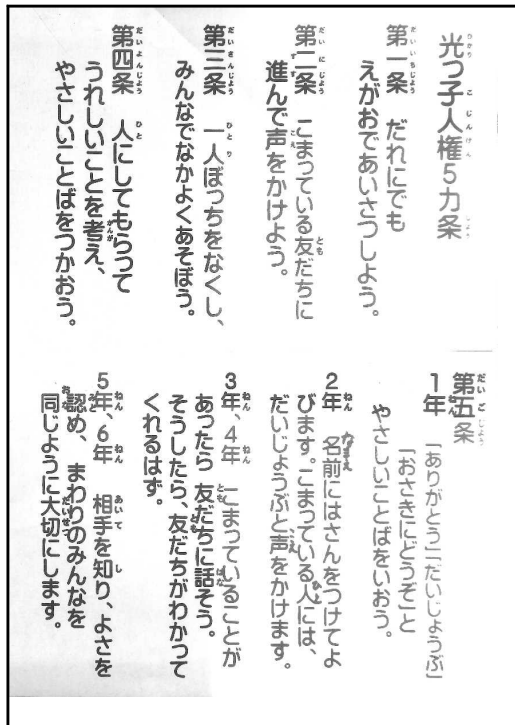 光っ子人権5カ条
第一条 だれにでも
えがおであいさつしよう。
第二条 こまっている友だちに
進んで声をかけよう。
第三条 一人ぼっちをなくし、
みんなでなかよくあそぼう。
第四条 人にしてもらって
うれしいことを考え、
やさしいことばをつかおう。
第五条
1年 「ありがとう」「だいじょうぶ」
「おさきにどうぞ」と
やさしいことばをいおう。
2年 名前にはさんをつけてよ
びます。こまっている人には、
だいじょうぶと声をかけます。
3年、4年 こまっていることが
あったら 友だちに話そう。
そうしたら、友だちがわかって
くれるはず。
5年、6年 相手を知り、よさを
認め、まわりのみんなを
同じように大切にします。